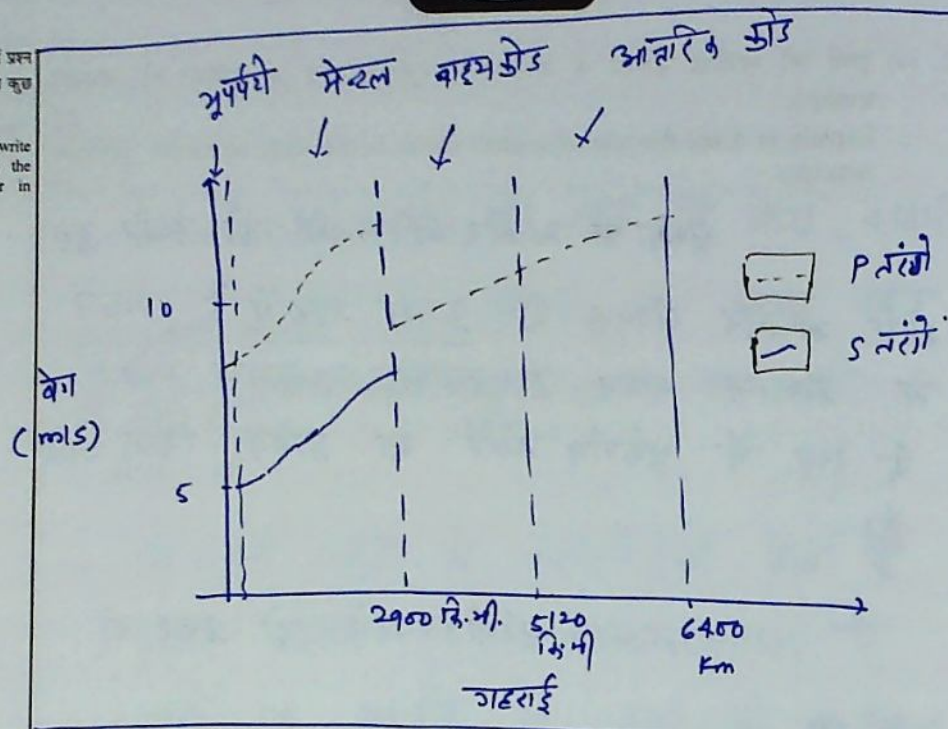 प्रश्न
कुछ
write
the
in
भूपर्पटी मेन्टल बाह्य क्रोड आन्तरिक क्रोड
10
5
वेग
(m/s)
P तरंगे
S तरंगें
2900 कि.मी. 5120 कि.मी 6400 Km
गहराई